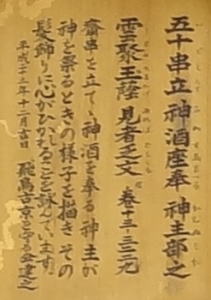 五十串立 神酒座奉 神主部之
雲聚玉蔭 見者乏文 巻十三-三二二九
齋串を立て、神酒を奉る神主が
神を祭るときの様子を描き その
髪飾りに心がひかれることを詠んでいます。
平成十三年十一月吉日 飛鳥古京を守る会建之